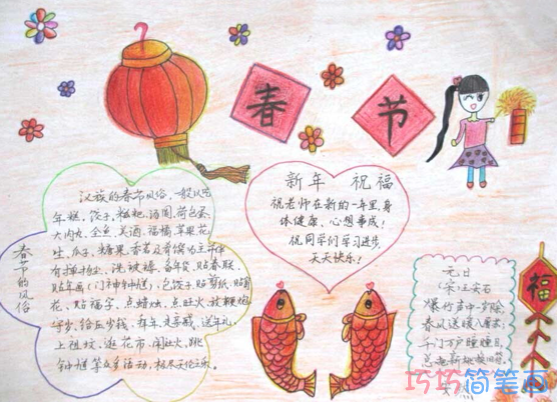 春节
春节的风俗
汉族的春节风俗，一般以吃
年糕、饺子、糍粑、汤圆、荷包蛋、
大肉丸、全鱼、美酒、福橘、苹果、花
生、瓜子、糖果、香茗及肴馔为主；并伴
有掸扬尘、洗被褥、备年货、贴春联、
贴年画、
包饺子、贴剪纸、贴窗
花、贴福字、点蜡烛、点旺火、放鞭炮、
守岁、给压岁钱、拜年、走亲戚、送年礼、
上祖坟、逛花市、闹社火、跳
钟馗等众多活动，极尽天伦之乐。
新年 祝福
祝老师在新的一年里，身
体健康、心想事成！
祝同学们学习进步，
天天快乐！
元日
（宋）王安石
爆竹声中一岁除，
春风送暖入屠苏；
千门万户曈曈日，
总把新桃换旧符。
福
巧巧简笔画